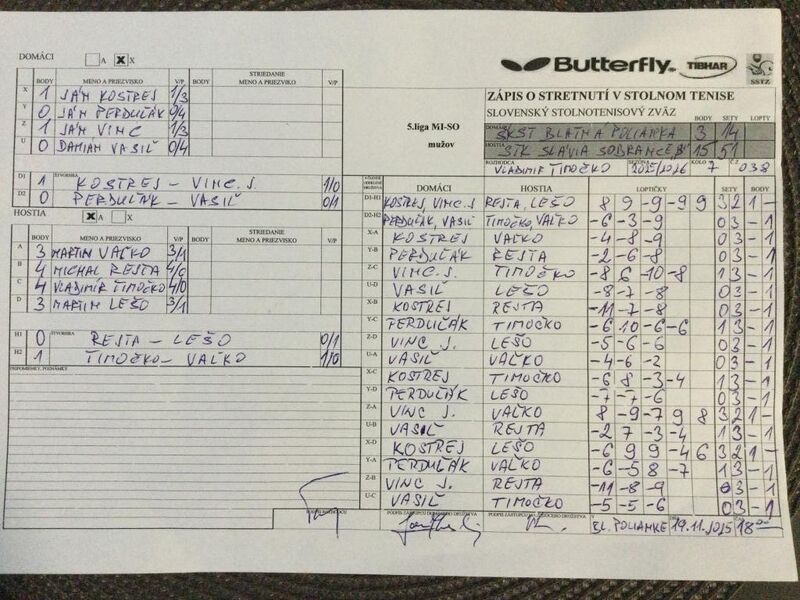 DOMÁCI A X X
Butterfly TIBHAR SSTZ
BODY MENO A PRIEZVISKO V/P BODY STRIEDANIE MENO A PRIEZVISKO V/P
X 1 JÁN KOSTREJ 1/3
Y 0 JÁN PERDUĽÁK 0/4
Z 1 JÁN VINC 1/3
U 0 DAMIAN VASIĽ 0/4
D1 1 ŠTVORHRA KOSTREJ - VINC. J. 1/0
D2 0 PERDUĽÁK - VASIĽ 0/1
HOSTIA X A X
BODY MENO A PRIEZVISKO V/P BODY STRIEDANIE MENO A PRIEZVISKO V/P
A 3 MARTIN VAĽKO 3/1
B 4 MICHAL REJTA 4/0
C 4 VLADIMÍR TIMOČKO 4/0
D 3 MARTIN LEŠO 3/1
H1 0 ŠTVORHRA REJTA - LEŠO 0/1
H2 1 TIMOČKO - VAĽKO 1/0
PRIPOMIENKY, POZNÁMKY
ZÁPIS O STRETNUTÍ V STOLNOM TENISE
SLOVENSKÝ STOLNOTENISOVÝ ZVÄZ
5.liga MI-SO
mužov
BODY SETY LOPTY
DOMÁCI ŠKST BLATNÁ POLIANKA 3 14
HOSTIA STK SLÁVIA SOBRANCE B 15 51
ROZHODCA VLADIMÍR TIMOČKO SEZÓNA 2015/2016 KOLO 7 Č.Z. 038
DOMÁCI HOSTIA LOPTIČKY SETY BODY
D1-H1 KOSTREJ, VINC. J REJTA, LEŠO 8 9 -9 -9 9 3 2 1 -
D2-H2 PERDUĽÁK, VASIĽ TIMOČKO, VAĽKO -6 -3 -9 0 3 - 1
X-A KOSTREJ VAĽKO -4 -8 -9 0 3 - 1
Y-B PERDUĽÁK REJTA -2 -6 -8 0 3 - 1
Z-C VINC. J. TIMOČKO -8 6 -10 -8 1 3 - 1
U-D VASIĽ LEŠO -8 -7 -8 0 3 - 1
X-B KOSTREJ REJTA -11 -7 -8 0 3 - 1
Y-C PERDUĽÁK TIMOČKO -6 10 -6 -6 1 3 - 1
Z-D VINC J. LEŠO -5 -6 -6 0 3 - 1
U-A VASIĽ VAĽKO -4 -6 -2 0 3 - 1
X-C KOSTREJ TIMOČKO -6 8 -3 -4 1 3 - 1
Y-D PERDUĽÁK LEŠO -7 -7 -6 0 3 - 1
Z-A VINC J. VAĽKO 8 -9 -7 9 8 3 2 1 -
U-B VASIĽ REJTA -2 7 -3 -4 1 3 - 1
X-D KOSTREJ LEŠO -6 9 9 -4 6 3 2 1 -
Y-A PERDUĽÁK VAĽKO -6 -5 8 -7 1 3 - 1
Z-B VINC J. REJTA -11 -8 -9 0 3 - 1
U-C VASIĽ TIMOČKO -5 -5 -6 0 3 - 1
PODPIS ROZHODCU PODPIS ZÁSTUPCU DOMÁCEHO DRUŽSTVA
V BL. POLIANKE 19.11.2015 18 00